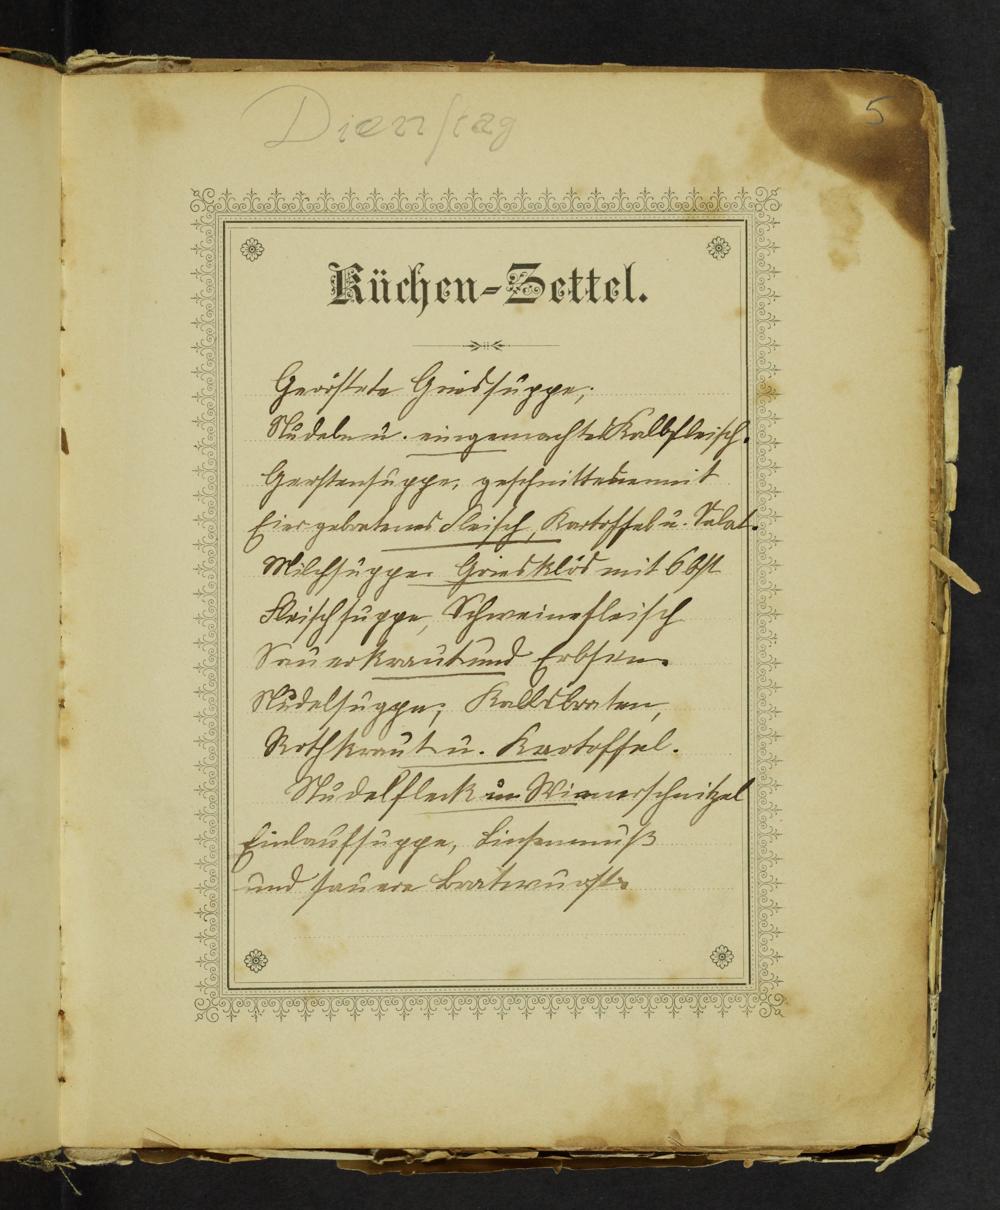 Dienstag
5
Küchen-Zettel.
Geröstete Griessuppe;
Nudeln u. eingemachtes Kalbfleisch.
Gerstensuppe, geschnittenes mit
Eier gebratenes Fleisch, Kartoffel u. Salat.
Milchsuppe. Griesklös mit Obst
Fleischsuppe, Schweinefleisch
Sauerkraut und Erbsen.
Nudelsuppe; Kalbsbraten,
Rothkraut u. Kartoffel.
Nudelfleck Wienerschnitzel
Einlaufsuppe, Linsenmuß
und sauere Bratwurst.